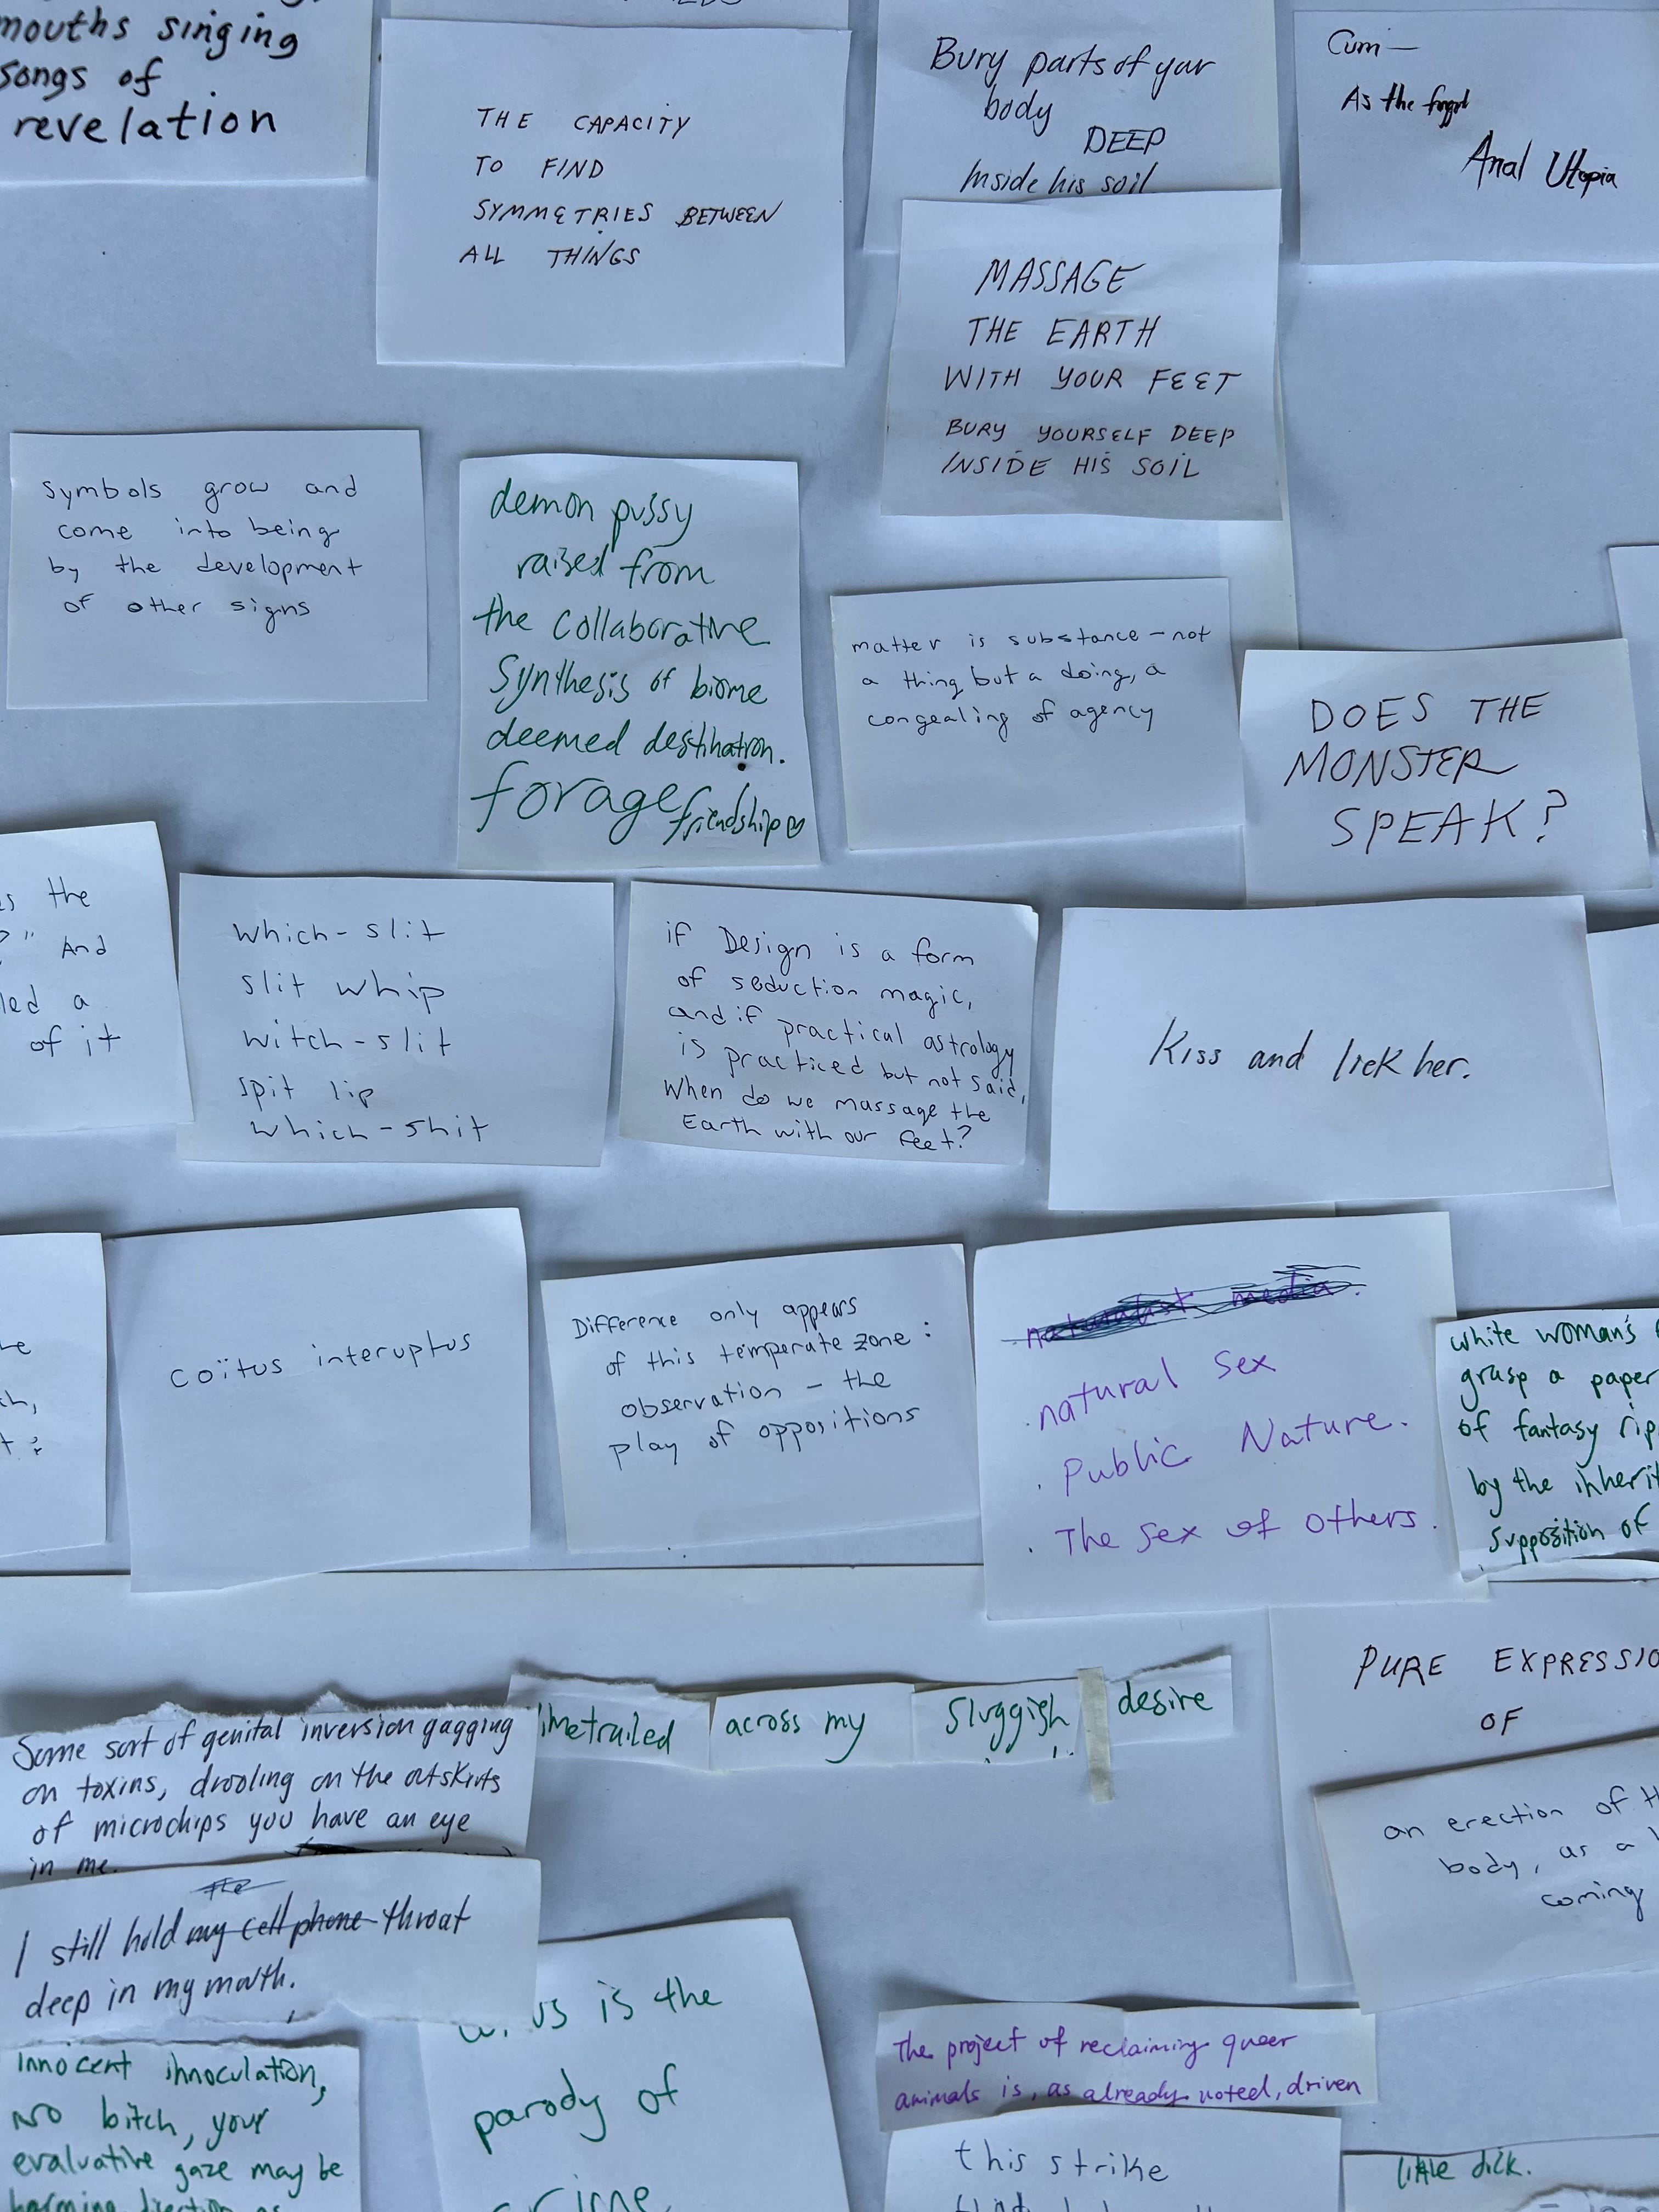 mouths singing
songs of
revelation
THE CAPACITY
TO FIND
SYMMETRIES BETWEEN
ALL THINGS
Bury parts of your
body
DEEP
Inside his soil
Cum—
As the
Anal Utopia
MASSAGE
THE EARTH
WITH YOUR FEET
BURY YOURSELF DEEP
INSIDE HIS SOIL
Symbols grow and
come into being
by the development
of other signs
demon pussy
raised from
the collaborative
Synthesis of biome
deemed destination.
forage friendship
matter is substance – not
a thing but a doing, a
congealing of agency
DOES THE
MONSTER
SPEAK?
the
?" And
led a
of it
which-slit
slit whip
witch-slit
spit lip
which-shit
if Design is a form
of seduction magic,
and if practical astrology
is practiced but not said,
When do we massage the
Earth with our feet?
Kiss and lick her.
coïtus interuptus
Difference only appears
of this temperate zone:
observation – the
play of oppositions
naturalist media.
. natural Sex
. Public Nature.
. The Sex of others.
white woman's
grasp a paper
of fantasy rip
by the inherit
supposition of
PURE EXPRESSIO
OF
Some sort of genital inversion gagging
on toxins, drooling on the outskirts
of microchips you have an eye
in me.
limetrailed across my sluggish desire
an erection of th
body, as a
coming
the
I still hold my cell phone throat
deep in my mouth.
us is the
parody of
crime
innocent innoculation,
NO bitch, your
evaluative gaze may be
The project of reclaiming queer
animals is, as already noted, driven
this strike
little dick.